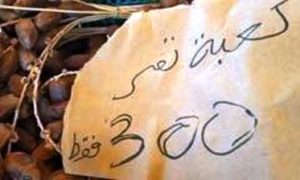 كعبة تمر
300 فقط